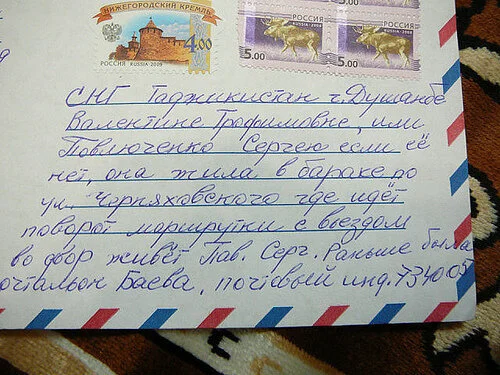 НИЖЕГОРОДСКИЙ КРЕМЛЬ
4.00
РОССИЯ RUSSIA 2009
РОССИЯ
RUSSIA · 2008
5.00
РОССИЯ
RUSSIA · 2008
5.00
СНГ Таджикистан г. Душанбе
Валентине Трофимовне, или
Повлюченко Сергею если её
нет, она жила в бараке по
ул. Черняховского где идёт
поворот маршрутки с выездом
во двор живёт Пав. Серг. Раньше была
очтальон Баева, почтовый инд. 734005